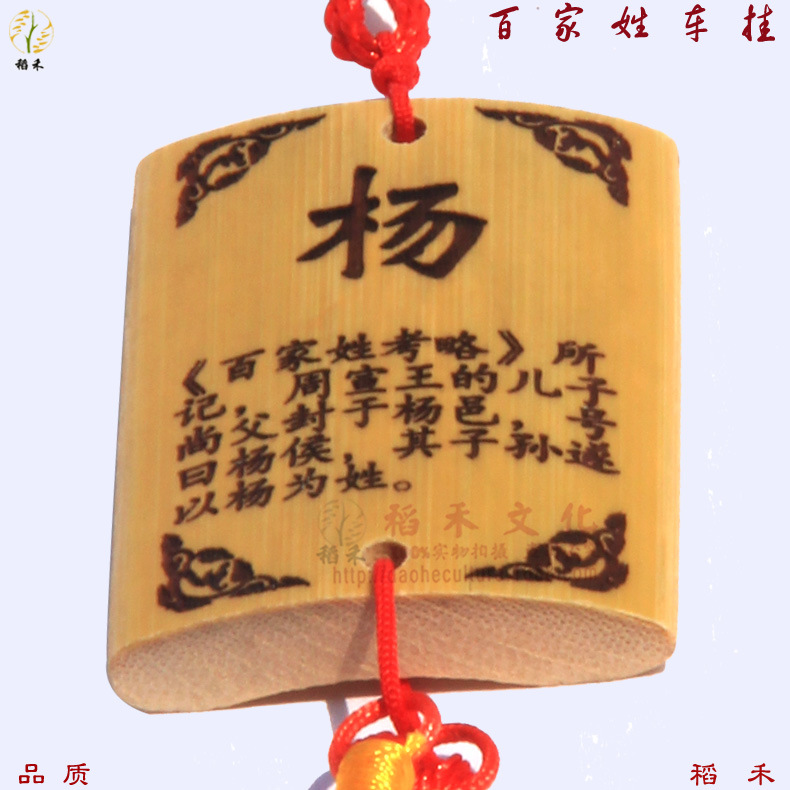 稻禾
百家姓车挂
杨
《百家姓考略》所
记，周宣王的儿子
尚父封于杨邑，号
曰杨侯，其子孙遂
以杨为姓。
稻禾文化
稻禾
100%实物拍摄
品质
稻禾